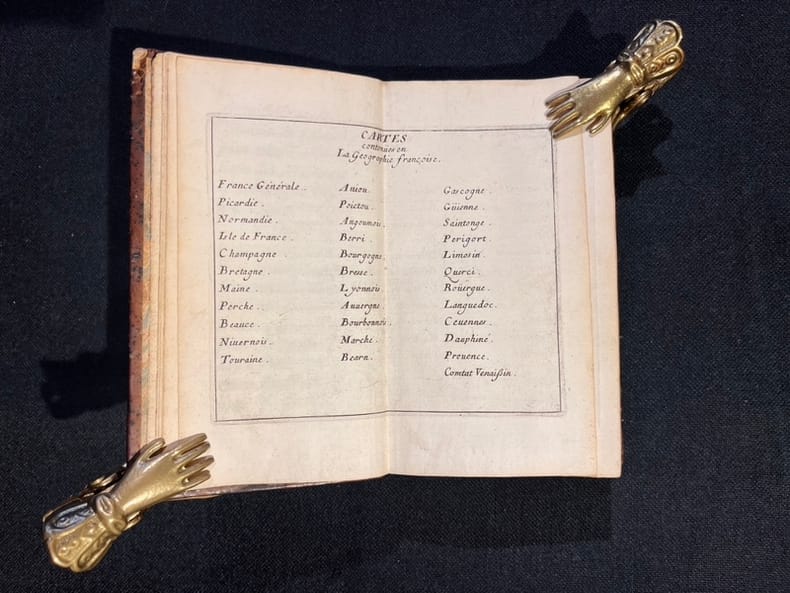 CARTES
contenues en
La Geographie françoise.
France Générale.
Picardie.
Normandie.
Isle de France.
Champagne.
Bretagne.
Maine.
Perche.
Beauce.
Niuernois.
Touraine.
Aniou.
Poictou.
Angoumois.
Berri.
Bourgogne.
Bresse.
Lyonnois.
Auuergne.
Bourbonnois.
Marche.
Bearn.
Gascogne.
Güienne.
Saintonge.
Perigort.
Limosin.
Querci.
Roüergue.
Languedoc.
Ceuennes.
Dauphiné.
Prouence.
Comtat Venaißin.